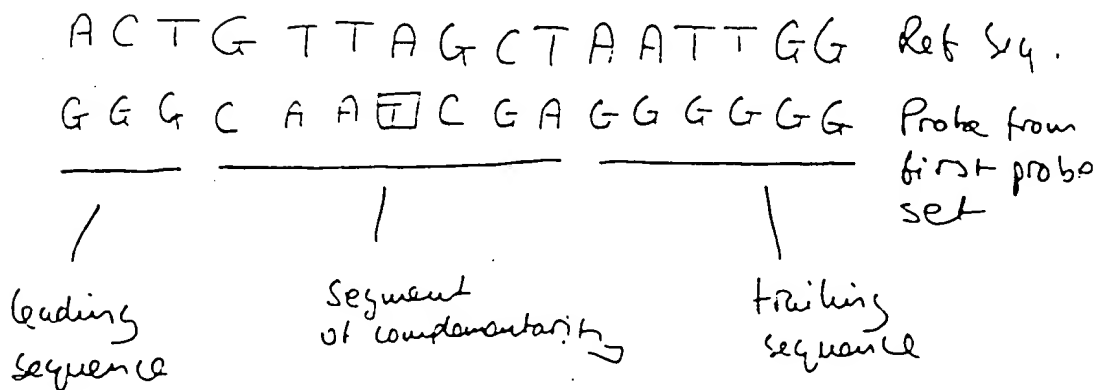 A C T G T T A G C T A A T T G G Ref Seq.
G G G C A A T C G A G G G G G G Probe from
first probe
set
leading
sequence
segment
of complementarity
trailing
sequence